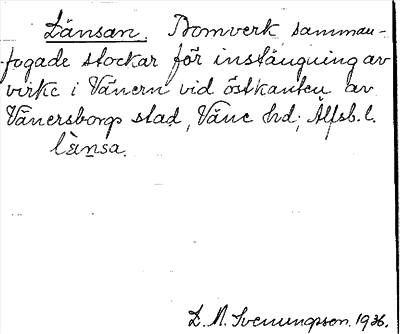 Länsan. Bomverk, samman-
fogade stockar för instängning av
virke i Vänern vid östkanten av
Vänersborgs stad, Väne hd; Älfsb. l.
länsa.
L. M. Svenungsson. 1936.